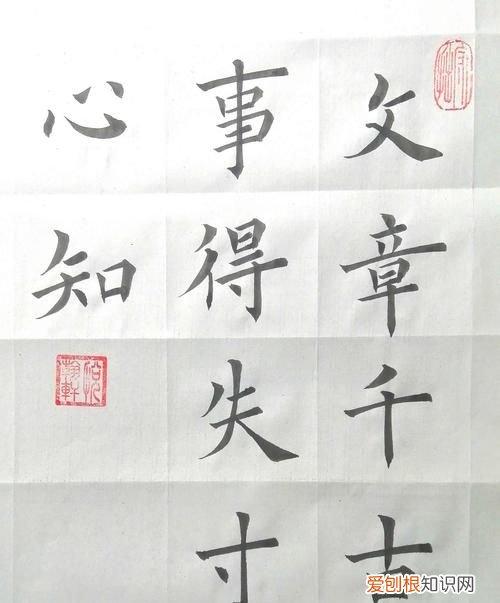 文章千古
事得失寸
心知
爱刨根知识网